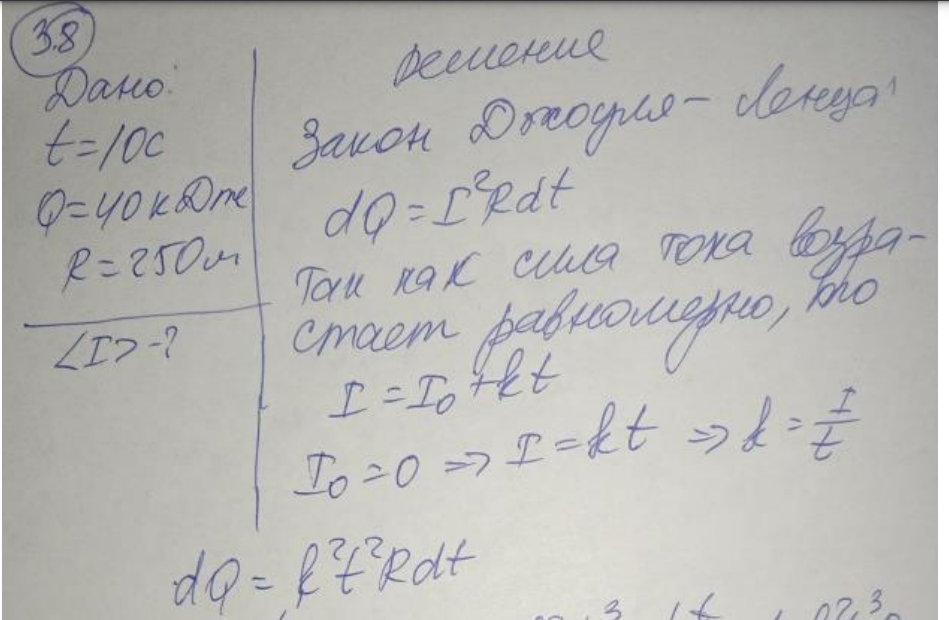 3.8
Дано:
t=10с
Q=40кДж
R=25Ом
<I>-?
Решение
Закон Джоуля-Ленца:
dQ=I²Rdt
Так как сила тока возра-
стает равномерно, то
I=I₀+kt
I₀=0 => I=kt => k=I/t
dQ=k²t²Rdt